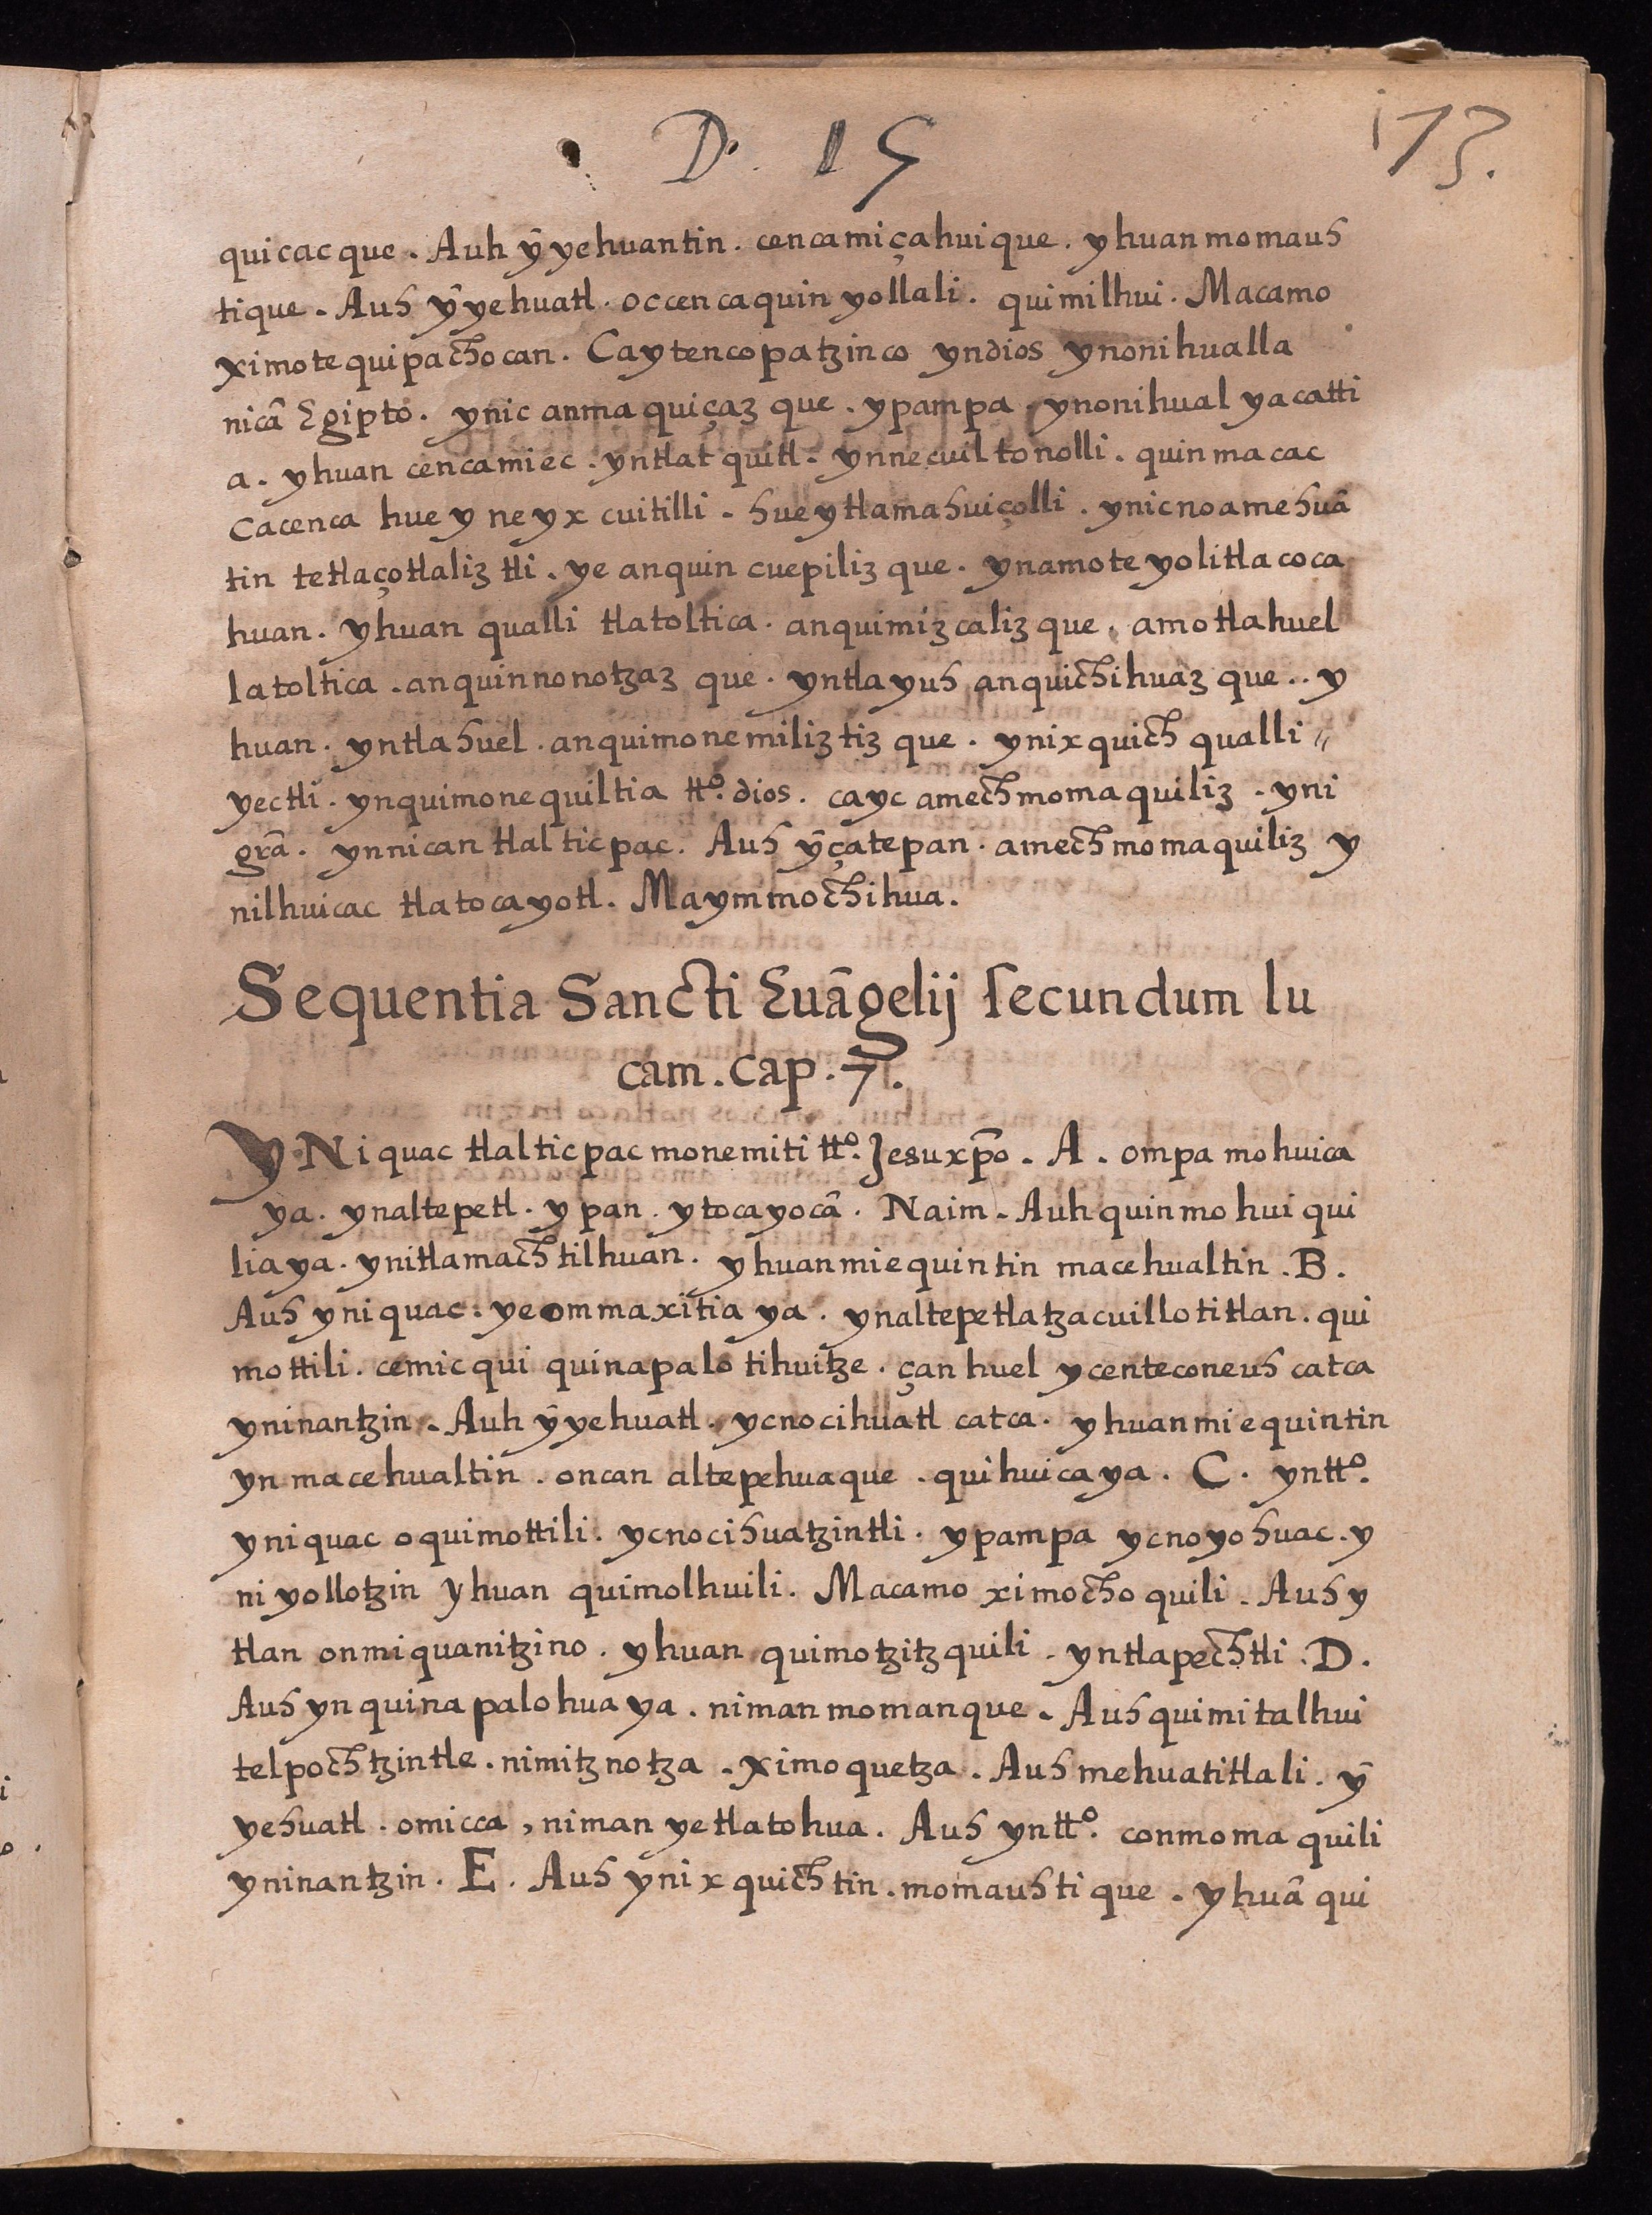 D. 15
173.
quicac que. Auh ỹ yehuantin. cencamiçahuique. yhuan momauh
tique. Auh ỹ yehuatl. occencaquin yollali. quimilhui. Macamo
ximotequipachocan. Caytencopatzinco yndios ynonihualla
nicã Egipto. ynic anmaquiçaz que. ypampa. ynonihual yacatti
a. yhuan cencamiec. yntlatquitl. ynnecuiltonolli. quinmacac
cacenca huey neyxcuitilli. hueytlamahuiçolli. ynicnoamehuã
tin tetlaçotlaliz tli. ye anquin cuepiliz que. ynamoteyolitlacoca
huan. yhuan qualli tlatoltica. anquimizcaliz que. amotlahuel
latoltica. anquinnonotzaz que. yntlayuh anquichihuaz que.. y
huan. yntlahuel. anquimonemiliztiz que. ynixquich qualli〃
yectli. ynquimonequiltia ttº. dios. cayc amechmomaquiliz. yni
grã. ynnican tlalticpac. Auh ỹçatepan. amechmomaquiliz y
nilhuicac tlatocayotl. Maymmochihua.
Sequentia Sancti Euãgelij secundum lu
cam. cap. 7.
YNiquac tlalticpac monemiti ttº. Jesuxp̃o. A. ompa mohuica
ya. ynaltepetl. ypan. ytocayocã. Naim. Auh quinmohuiqui
liaya. ynitlamachtilhuan. yhuan miequintin macehualtin. B.
Auh yniquac. yeommaxitiaya. ynaltepetlatzacuillotitlan. qui
mottili. cemicqui quinapalotihuitze. çan huel ycenteconeuh catca
yninantzin. Auh ỹ yehuatl. ycnocihuatl catca. yhuan miequintin
yn macehualtin. oncan altepehuaque. quihuicaya. C. ynttº.
yniquac oquimottili. ycnocihuatzintli. ypampa ycnoyohuac. y
ni yollotzin yhuan quimolhuili. Macamo ximochoquili. Auh y
tlan onmiquanitzino. yhuan quimotzitzquili. yntlapechtli. D.
Auh yn quinapalohuaya. niman momanque. Auh quimitalhui
telpochtzintle. nimitznotza. ximoquetza. Auh mehuatitlali. ỹ
yehuatl. omicca, niman yetlatohua. Auh ynttº. conmomaquili
yninantzin. E. Auh ynixquichtin. momauhtique. yhuã qui